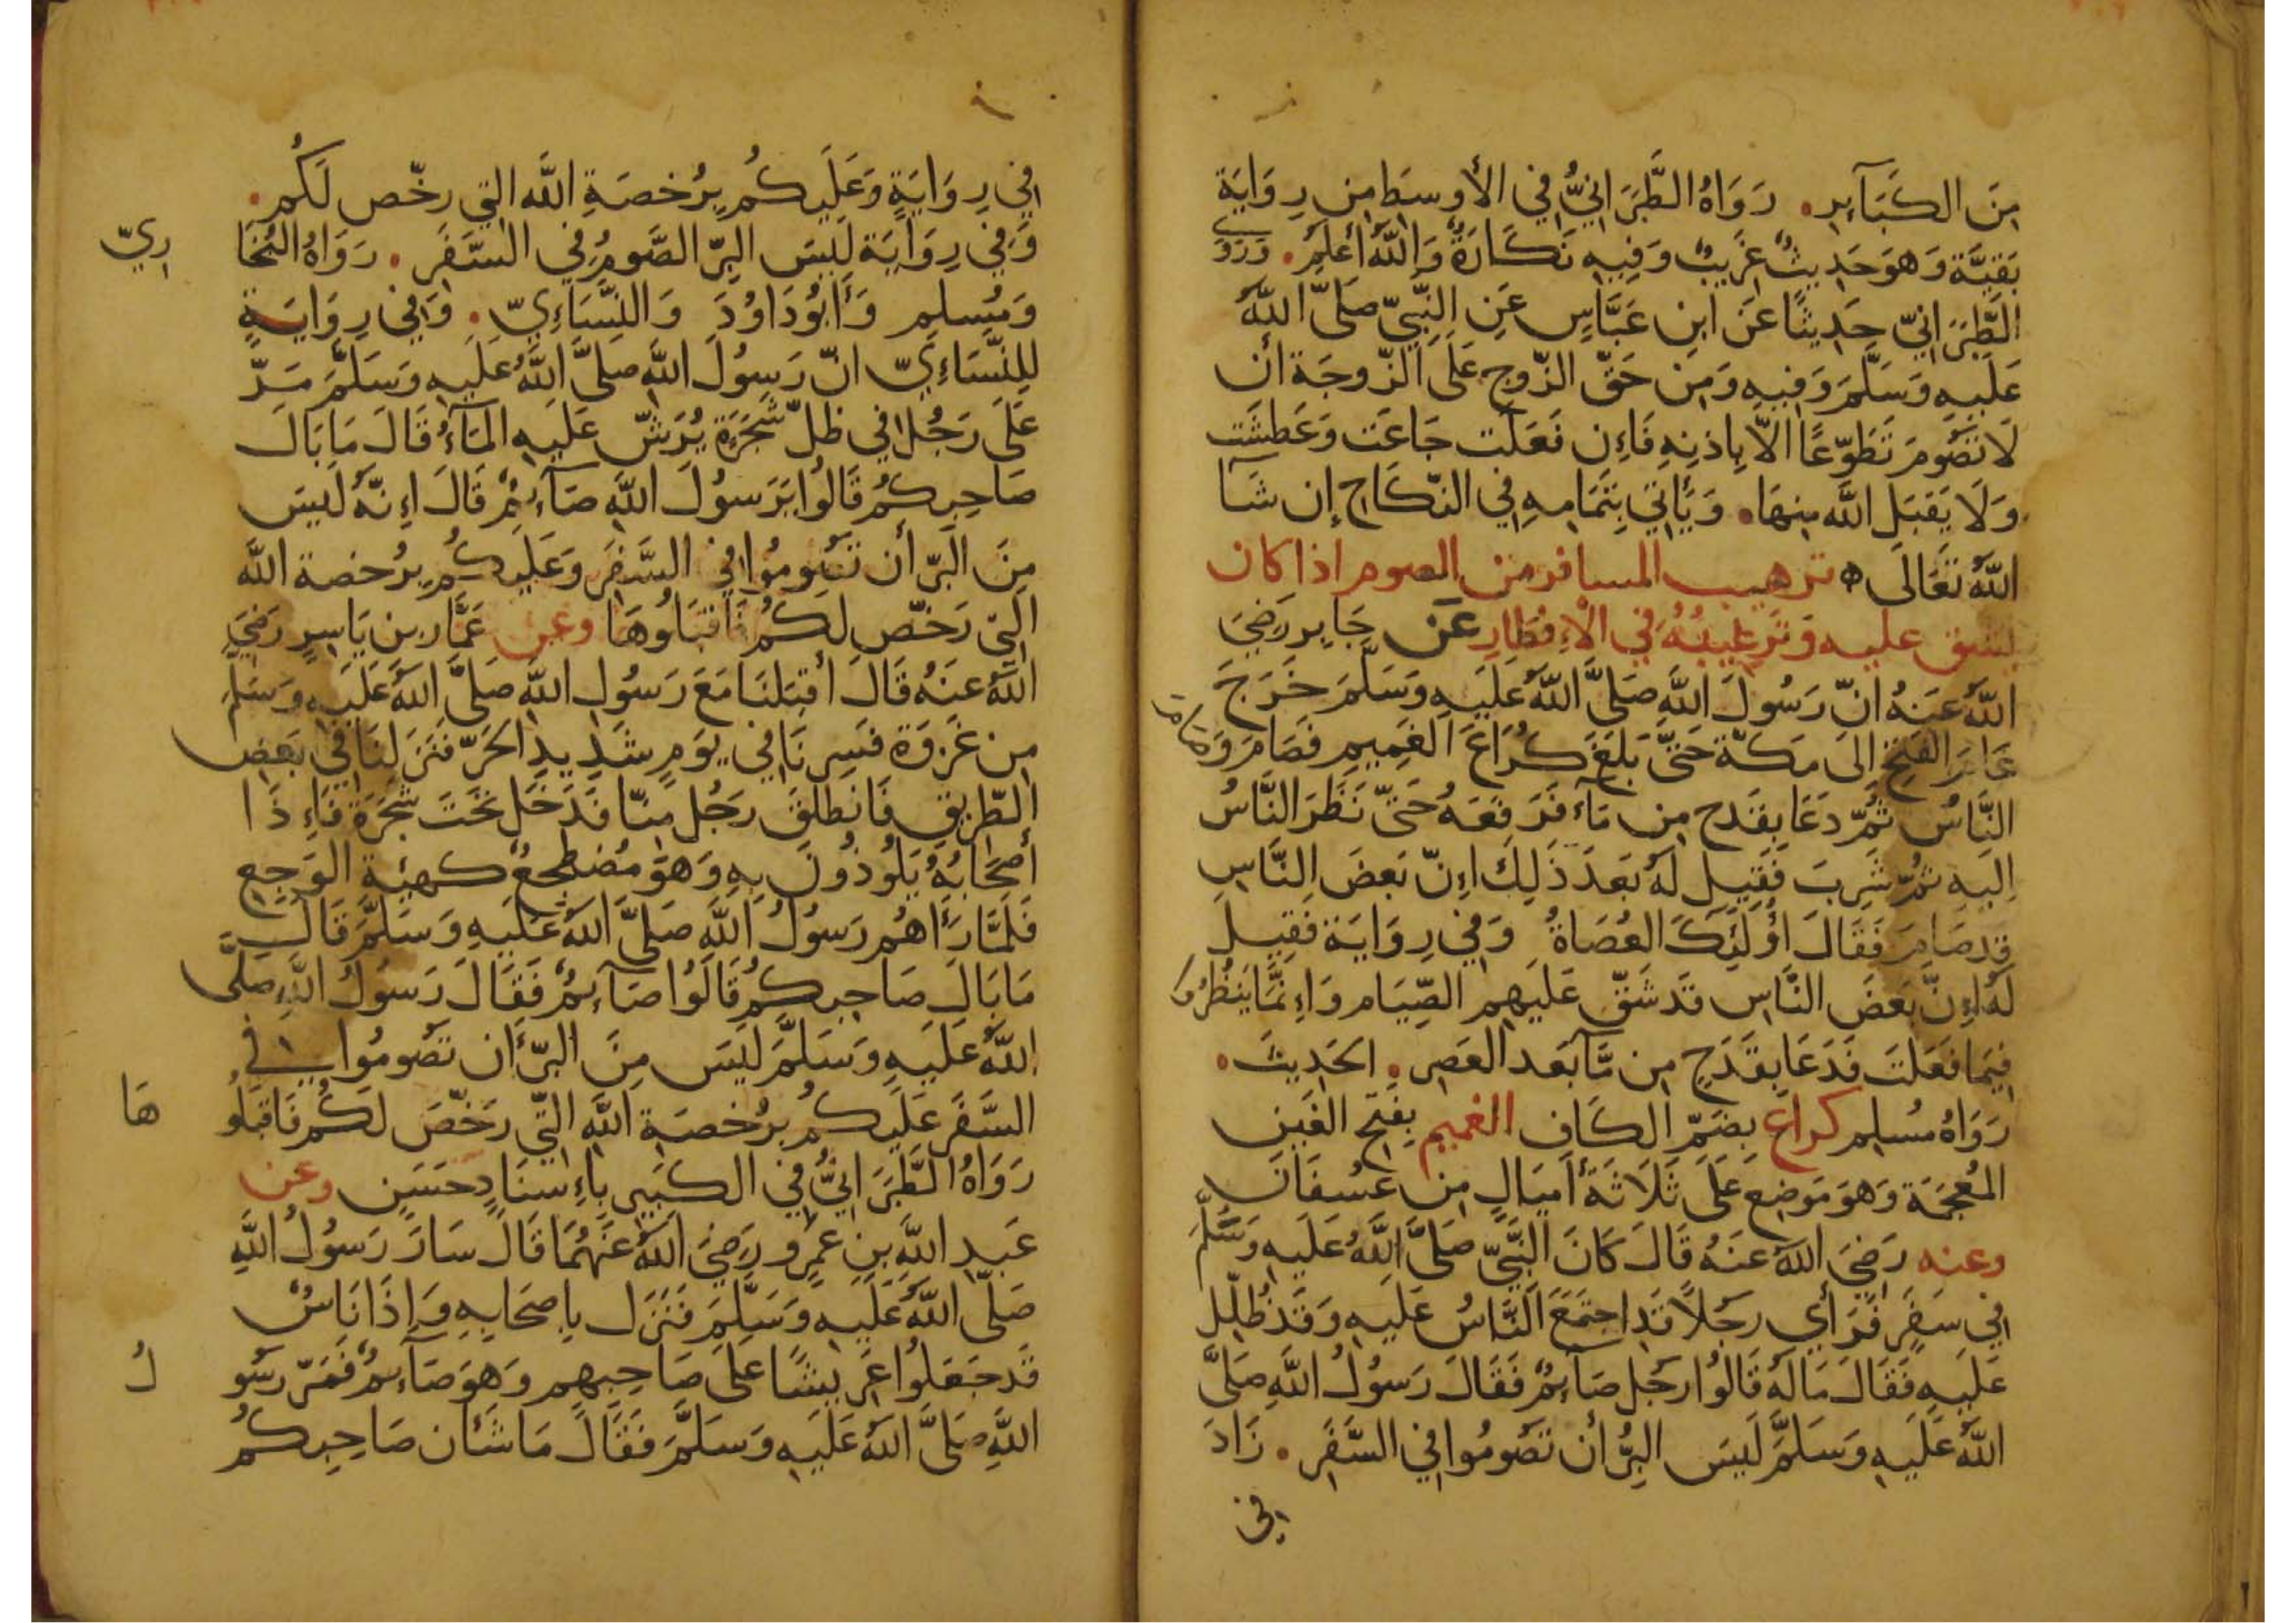 مِنَ الكَبَآيِرِ. رَوَاهُ الطَّبَرَانِيُّ فِي الأوسَطِ مِن رِوَايَةِ
بَقِيَّة وَهوَ حَدِيثٌ غَرِيبٌ وَفِيهِ نَكَارَةٌ وَاللّٰهُ أعلمُ. وَرَوَى
الطَّبَرَانِيّ حَدِيثًا عَن ابنِ عَبَّاسٍ عَنِ النَّبِيّ صَلَّى اللّٰهُ
عَلَيهِ وَسَلَّمَ وَفِيهِ وَمِن حَقّ الزّوجِ عَلَى الزّوجَة ان
لَا تَصُومَ تَطَوّعًا الاّ بِاِذنِهِ فَاِن فَعَلَت جَاعَت وَعَطِشَت
وَلَا يَقبَلِ اللّٰه مِنهَا. وَيَأتِي بِتَمَامِهِ فِي النّكَاحِ إن شَآ
اللّٰهُ تَعَالَى ه ترهيب المسافر من الصوم اذا كان
يشق عليه وَتَرغِيبُهُ فِي الْاِفطَارِ عَن جَابِر رَضِيَ
اللّٰهُ عَنهُ انّ رَسُولَ اللّٰهِ صَلَّى اللّٰهُ عَلَيهِ وَسَلَّمَ خَرَجَ
عَامَ الفَتحِ اِلَى مَكّة حَتَّى بَلَغَ كُرَاعَ الغَمِيمِ فَصَامَ وَصَام
النَّاسُ ثُمّ دَعَا بِقَدح مِن مَآء فَرَفَعَهُ حَتّى نَظَرَ النَّاسُ
اِلَيهِ ثُمّ شَرِبَ فَقِيلَ لَهُ بَعدَ ذَلِكَ اِنّ بَعضَ النَّاسِ
قد صَامَ فَقَالَ اُولَئِكَ العُصَاةُ وَفِي رِوَايَة فَقِيلَ
لَهُ اِنّ بَعضَ النَّاسِ قَد شَقّ عَلَيهِم الصِّيَام وَاِنّمَا يَنظُرُون
فِيمَا فَعَلتَ فَدَعَا بِقَدَحٍ مِن مَّآ بَعد العَصرِ. الحَدِيثَ.
رَوَاهُ مُسلِم كراع بِضَمِّ الكَافِ الغميم بِفَتحِ الغَينِ
المُعجَمَة وَهوَ مَوضِع عَلَى ثَلَاثَة أميَالٍ مِن عُسفَانَ
وعنه رَضِيَ اللّٰهُ عَنهُ قَالَ كَانَ النَّبِيّ صَلَّى اللّٰهُ عَلَيهِ وَسَلَّمَ
فِي سَفَرٍ فَرَأي رَجُلاً قَدِ اجتَمَعَ النَّاسُ عَلَيهِ وَقَد ظُلّل
عَلَيهِ فَقَالَ مَا لَهُ قَالُوا رَجُل صَآئِمٌ فَقَالَ رَسُولُ اللّٰهِ صَلَّى
اللّٰهُ عَلَيهِ وَسَلَّمَ لَيسَ البِرُّ أن تَصُومُوا فِي السَّفَرِ. زَادَ
في
فِي رِوَايَةٍ وَعَلَيكُم بِرُخصَةِ اللّٰه التِي رخّص لَكُم.
وَفِي رِوَايَة لَيسَ البِرّ الصَّومُ فِي السَّفَرِ. رَوَاهُ البُخَا
رِيّ
وَمُسلِم وَأبُو دَاوُدَ وَالنَّسَاءِيّ. وَفِي رِوَايَةٍ
لِلنَّسَاءِيّ انّ رَسُولَ اللّٰهِ صَلَّى اللّٰهُ عَلَيهِ وَسَلَّمَ مَرّ
عَلَى رَجُل فِي ظلّ شَجَرَةٍ يُرَشّ عَلَيهِ المَآءُ قَالَ مَا بَالَ
صَاحِبكُم قَالُوا يَرَسولَ اللّٰهِ صَآئِمٌ قَالَ اِنّهُ لَيسَ
مِنَ البِرّ أن تَصُومُوا فِي السَّفَرِ وَعَلَيكُم بِرُخصة اللّٰه
التِي رَخّص لَكُم فَاقبَلُوهَا وعن عَمَّار بن يَاسِرٍ رَضِيَ
اللّٰهُ عَنهُ قَالَ أقبَلنَا مَعَ رَسُولِ اللّٰهِ صَلَّى اللّٰهُ عَلَيهِ وَسَلَّمَ
مِن غَزوَة فَسِرنَا فِي يَومٍ شَدِيدِ الحَرّ فَنَزَلنَا فِي بَعضِ
الطّرِيقِ فَانطَلَقَ رَجُل مِنّا فَدَخَل تَحتَ شَجَرَة فَاِذَا
أصحَابُهُ يَلُوذُونَ بِهِ وَهوَ مُضطَجِعٌ كَهيئَة الوَجِعِ
فَلَمَّا رَءَاهُم رَسُولُ اللّٰهِ صَلَّى اللّٰهُ عَلَيهِ وَسَلَّمَ قَالَ
مَا بَالَ صَاحِبكُم قَالُوا صَآئِمٌ فَقَالَ رَسُولُ اللّٰهِ صَلَّى
اللّٰهُ عَلَيهِ وَسَلَّمَ لَيسَ مِنَ البِرّ أن تَصُومُوا فِي
السَّفَرِ عَلَيكُم بِرُخصَةِ اللّٰهِ التِّي رَخّصَ لَكُم فَاقبَلُو
هَا
رَوَاهُ الطَّبَرَانِيُّ فِي الكَبِيرِ بِاِسنَادٍ حَسَنٍ وعن
عَبدِ اللّٰهِ بنِ عَمرٍو رَضِيَ اللّٰهُ عَنهُمَا قَالَ سَارَ رَسُولُ اللّٰهِ
صَلَّى اللّٰهُ عَلَيهِ وَسَلَّمَ فَنَزَل بِاصحَابِهِ وَاِذَا نَاسٌ
قَد جَعَلُوا عَرِيشًا عَلَى صَاحِبِهِم وَهوَ صَآئِمٌ فَمَرّ رَسُو
لُ
اللّٰهِ صَلَّى اللّٰهُ عَلَيهِ وَسَلَّمَ فَقَالَ مَا شَأن صَاحِبكُم